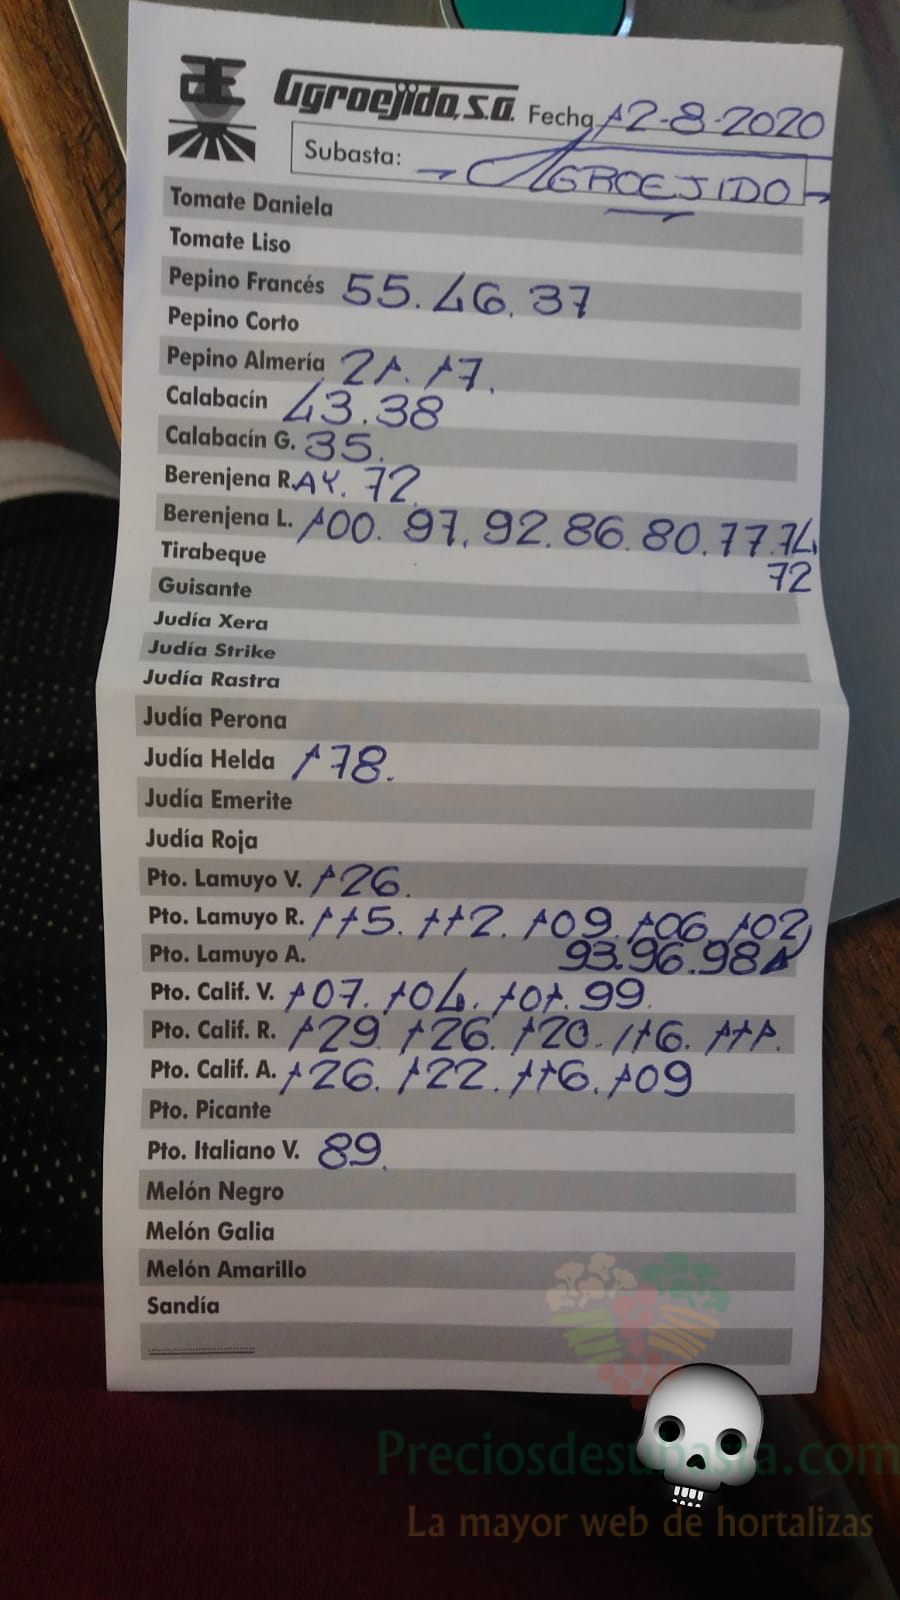 Agroejido, S.A. Fecha 12-8-2020
Subasta: AGROEJIDO
Tomate Daniela
Tomate Liso
Pepino Francés 55. 46. 37
Pepino Corto
Pepino Almería 21. 17.
Calabacín 43. 38
Calabacín G. 35.
Berenjena R. AY. 72.
Berenjena L. 100. 97. 92. 86. 80. 77. 74
72
Tirabeque
Guisante
Judía Xera
Judía Strike
Judía Rastra
Judía Perona
Judía Helda 178.
Judía Emerite
Judía Roja
Pto. Lamuyo V. 126.
Pto. Lamuyo R. 115. 112. 109. 106. 102
93. 96. 98
Pto. Lamuyo A.
Pto. Calif. V. 107. 104. 101. 99.
Pto. Calif. R. 129. 126. 120. 116. 111.
Pto. Calif. A. 126. 122. 116. 109
Pto. Picante
Pto. Italiano V. 89.
Melón Negro
Melón Galia
Melón Amarillo
Sandía
Preciosdesubasta.com
La mayor web de hortalizas